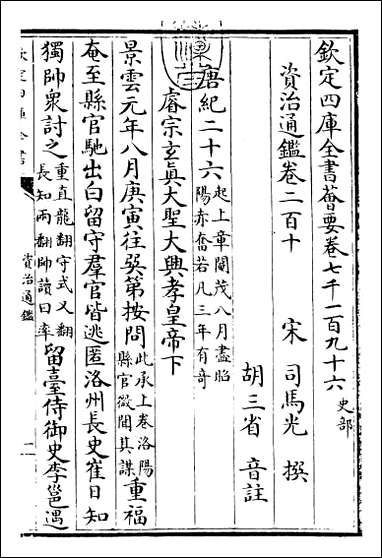 欽定四庫全書薈要卷七千一百九十六 史部
資治通鑑卷二百十
宋 司馬光 撰
胡三省 音註
唐紀二十六起上章閹茂八月盡昭陽赤奮若凡三年有奇
睿宗玄真大聖大興孝皇帝下
景雲元年八月庚寅往巽第按問此承上卷洛陽縣官微聞其謀重福
奄至縣官馳出白留守羣官皆逃匿洛州長史崔日知
獨帥衆討之重直龍翻守式又翻長知兩翻帥讀曰率留臺侍御史李邕遇
資治通鑑